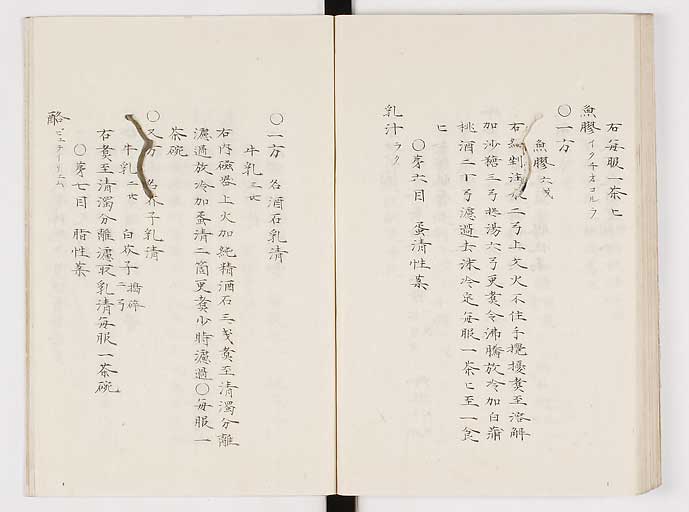 右每服一茶匕
魚膠イクチオコルラ
〇一方
魚膠六戔
右剉注水二弓上文火不住手攪擾煑至溶解
加沙糖三弓熱湯六弓更煑令沸騰放冷加白葡
桃酒二十弓濾過去滓冷定每服一茶匕至一食
匕
〇第六目 蛋清性薬
乳汁ラク
〇一方 名酒石乳清
牛乳二十
右内磁器上火加純精酒石三戔煑至清濁分離
濾過放冷加蛋清二箇更煑少時濾過〇每服一
茶碗
〇又方 名芥子乳清
牛乳二 白芥子搗碎二弓
右煑至清濁分離濾取乳清每服一茶碗
〇第七目 脂性薬
酪